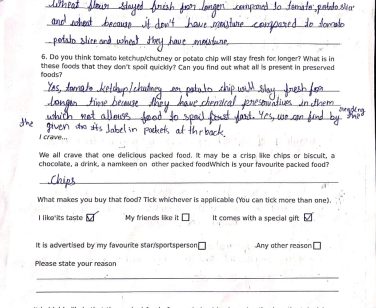 Wheat flour stayed fresh for longer compared to tomato, potato slice
and wheat because it don't have moisture compared to tomato
potato slice and wheat they have moisture.
6. Do you think tomato ketchup/chutney or potato chip will stay fresh for longer? What is in
these foods that they don't spoil quickly? Can you find out what all is present in preserved
foods?
Yes, tomato ketchup/chutney or potato chip will stay fresh for
longer time because they have chemical preservatives in them
which not allows food to spoil fast. Yes, we can find by reading the
the given on its label in packets at the back.
I crave...
We all crave that one delicious packed food. It may be a crisp like chips or biscuit, a
chocolate, a drink, a namkeen or other packed foodWhich is your favourite packed food?
Chips
What makes you buy that food? Tick whichever is applicable (You can tick more than one).
I like'its taste ☑ My friends like it ☐ It comes with a special gift ☑
It is advertised by my favourite star/sportsperson ☐ .Any other reason ☐
Please state your reason